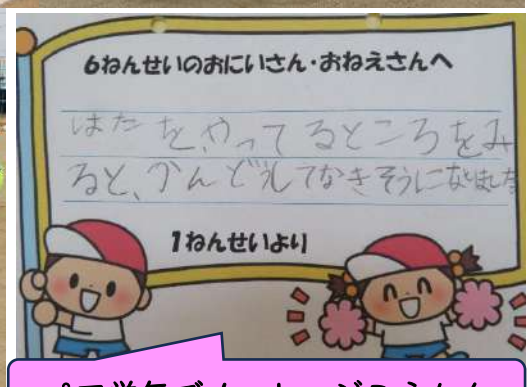 6ねんせいのおにいさん・おねえさんへ
はたを、やってるところをみ
ると、かんどうしてなきそうになりました
1ねんせいより